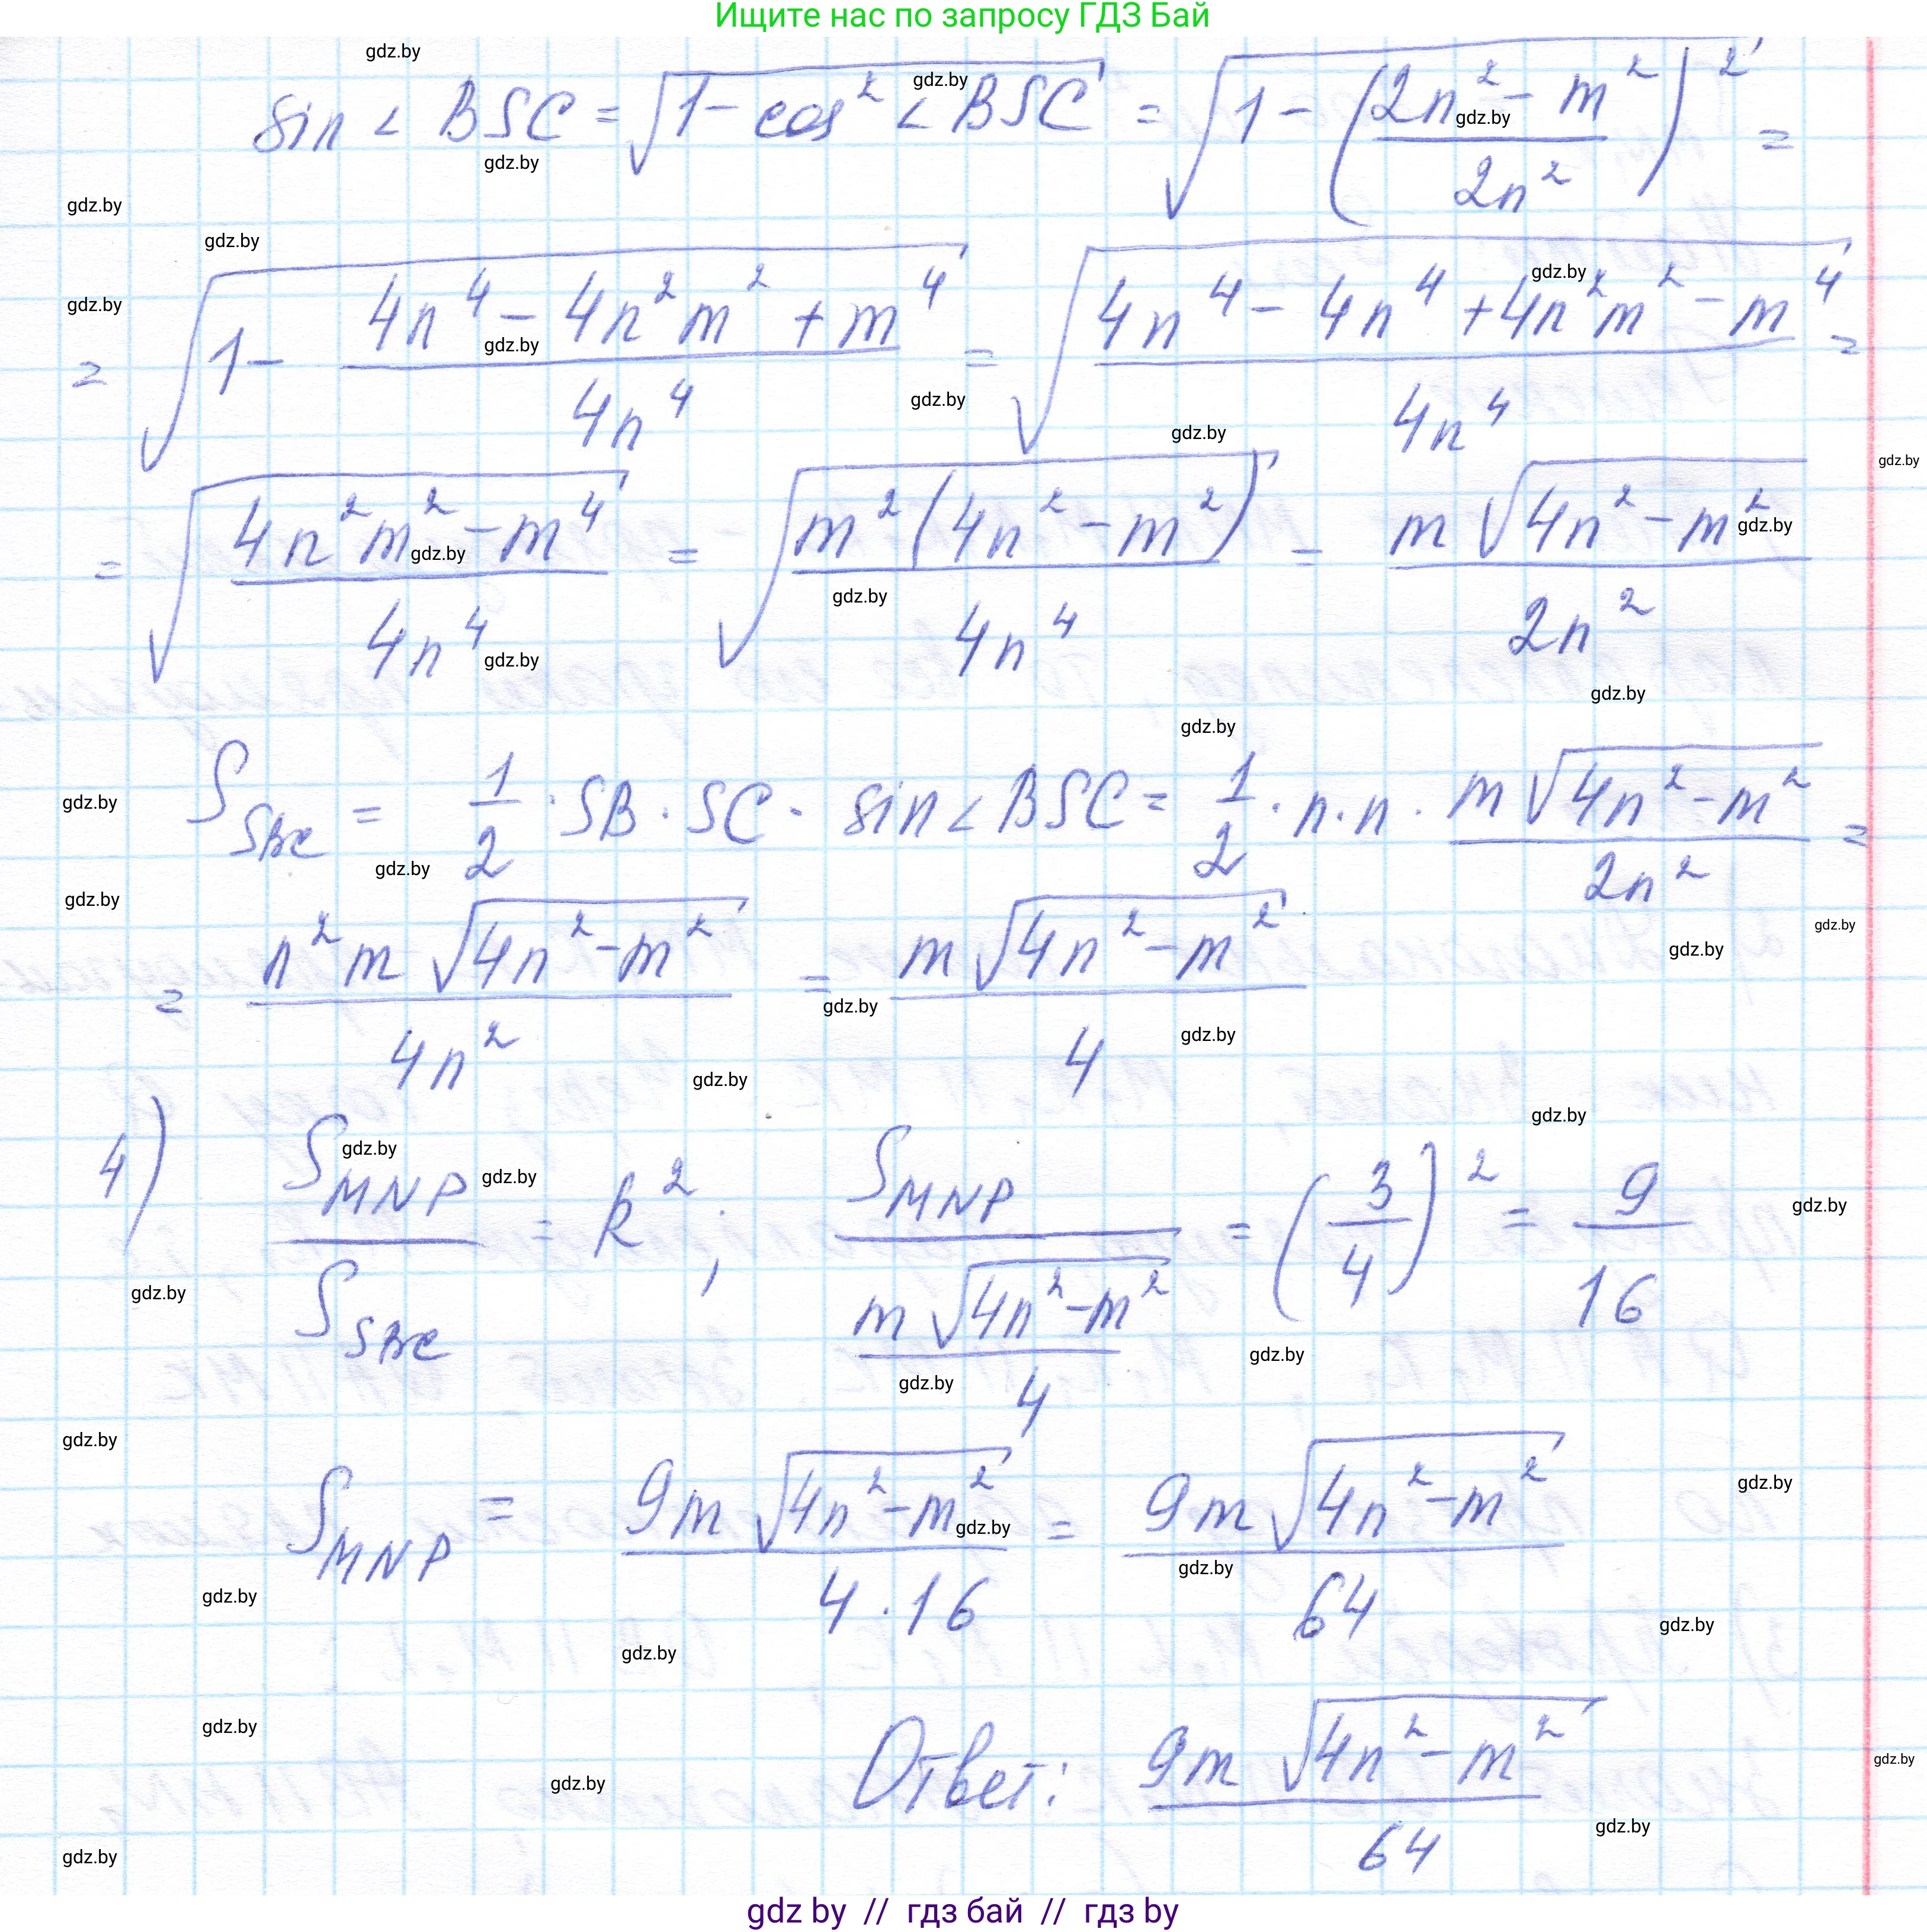 Ищите нас по запросу ГДЗ Бай
sin ∠ BSC = √(1 - cos² ∠ BSC) = √(1 - ((2n² - m²)/(2n²))²) =
= √(1 - (4n⁴ - 4n²m² + m⁴)/(4n⁴)) = √((4n⁴ - 4n⁴ + 4n²m² - m⁴)/(4n⁴)) =
= √((4n²m² - m⁴)/(4n⁴)) = √((m²(4n² - m²))/(4n⁴)) = (m√(4n² - m²))/(2n²)
S_SBC = 1/2 · SB · SC · sin ∠ BSC = 1/2 · n · n · (m√(4n² - m²))/(2n²) =
= (n²m√(4n² - m²))/(4n²) = (m√(4n² - m²))/4
4) S_MNP/S_SBC = k²; S_MNP/((m√(4n² - m²))/4) = (3/4)² = 9/16
S_MNP = (9m√(4n² - m²))/(4 · 16) = (9m√(4n² - m²))/64
Ответ: (9m√(4n² - m²))/64
gdz by // гдз бай // гдз by